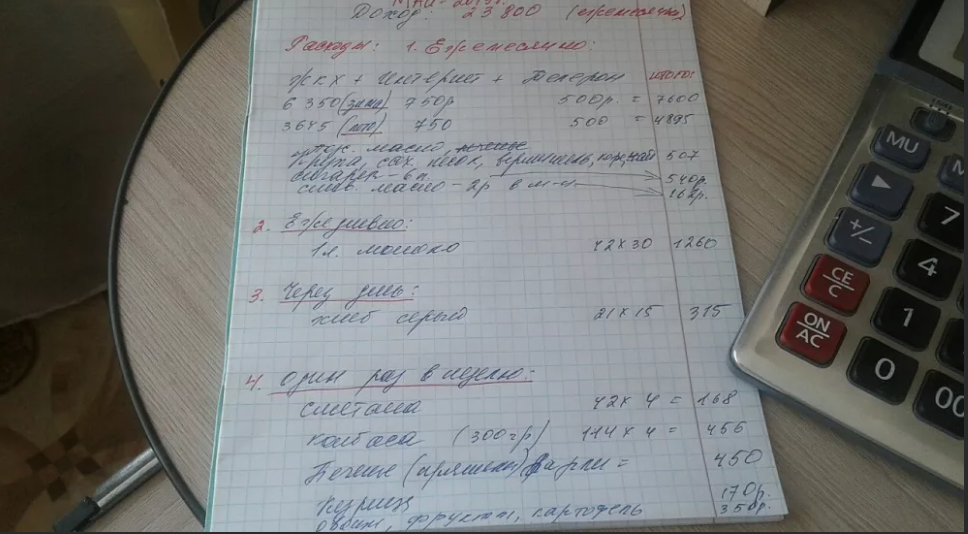 МАЙ - 2019г.
Доход: 23 800 (ежемесячно)
Расходы: 1. Ежемесячно:
ЖКХ + Интернет + Телефон ИТОГО:
6 350 (зима) 750р 500р. = 7600
3645 (лето) 750 500 = 4895
масло,
Крупа, сах. песок, вермишель, чай 507
Сигарет - 6п. 540р.
слив. масло - 2р в м-ц 162р.
2. Ежедневно:
1л. молоко 42 x 30 1260
3. Через день:
хлеб серый 21 x 15 315
4. Один раз в неделю:
сметана 42 x 4 = 168
колбаса (300гр) 114 x 4 = 456
Печенье (пряники) = 450
Курица 170р.
овощи, фрукты, картофель 350р.
MU
+/-
CE/C
ON/AC
7
4
1
0
00